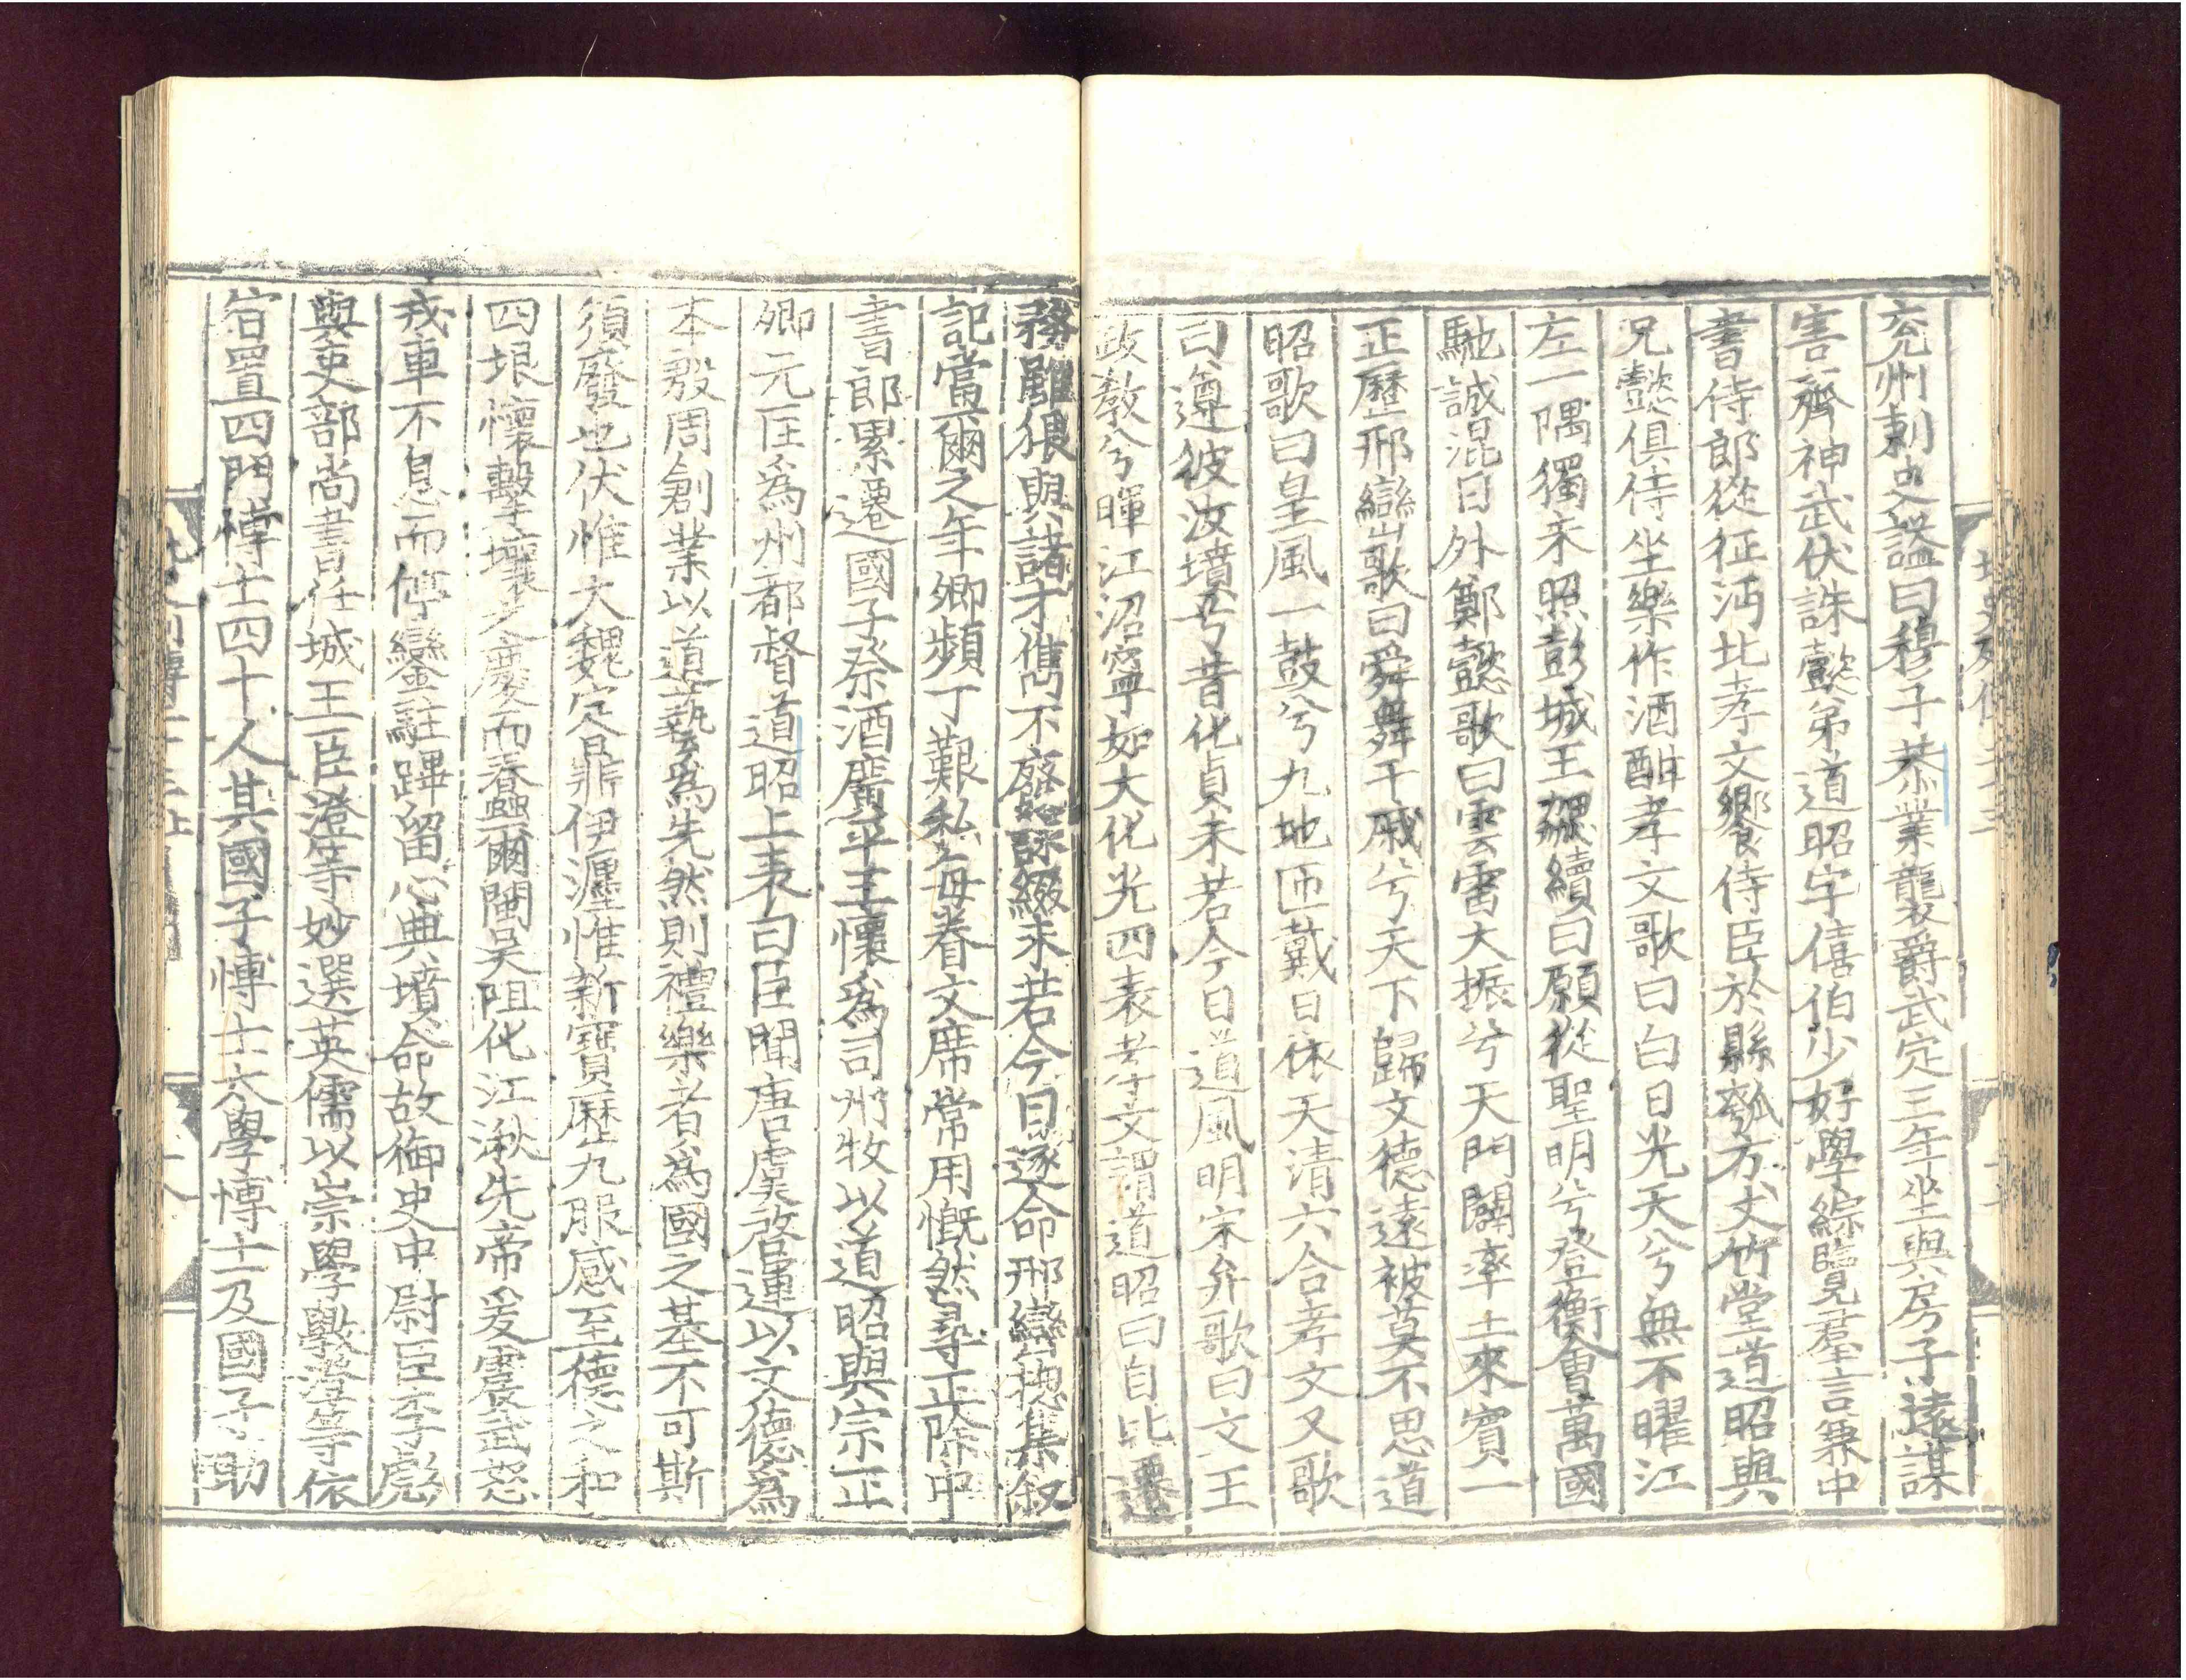 兖州刺史諡曰穆子恭業襲爵武定三年坐與房子遠謀
害齊神武伏誅懿弟道昭字僖伯少好學綜覽羣言兼中
書侍郎從征沔北孝文饗侍臣於縣瓠方丈竹堂道昭與
兄懿俱侍坐樂作酒酣孝文歌曰白日光天兮無不曜江
左一隅獨未照彭城王勰續曰願從聖明兮登衡會萬國
馳誠混日外鄭懿歌曰雲雷大振兮天門闢率土來賓一
正歷邢巒歌曰舜舞干戚兮天下歸文德遠被莫不思道
昭歌曰皇風一鼓兮九地匝戴日依天清六合孝文又歌
曰遵彼汝墳兮昔化貞未若今日道風明宋弁歌曰文王
政教兮暉江沼寧如大化光四表孝文謂道昭曰自比遷
務雖猥與諸才儁不廢詠綴未若今日遂命邢巒摠集叙
記當爾之年卿頻丁艱私每眷文席常用慨然尋正除中
書郎累遷國子祭酒廣平王懷爲司州牧以道昭與宗正
卿元匡爲州都督道昭上表曰臣聞唐虞啓運以文德爲
本殷周創業以道藝爲先然則禮樂者爲國之基不可斯
須廢也伏惟大魏定鼎伊瀍惟新寶歷九服感至德之和
四垠懷擊壤之慶而蠢爾閩吳阻化江湫先帝爰震武怒
戎車不息而停鑾駐蹕留心典墳命故御史中尉臣李彪
與吏部尚書任城王臣澄等妙選英儒以崇學斆澄等依
宿置四門博士四十人其國子博士太學博士及國子助